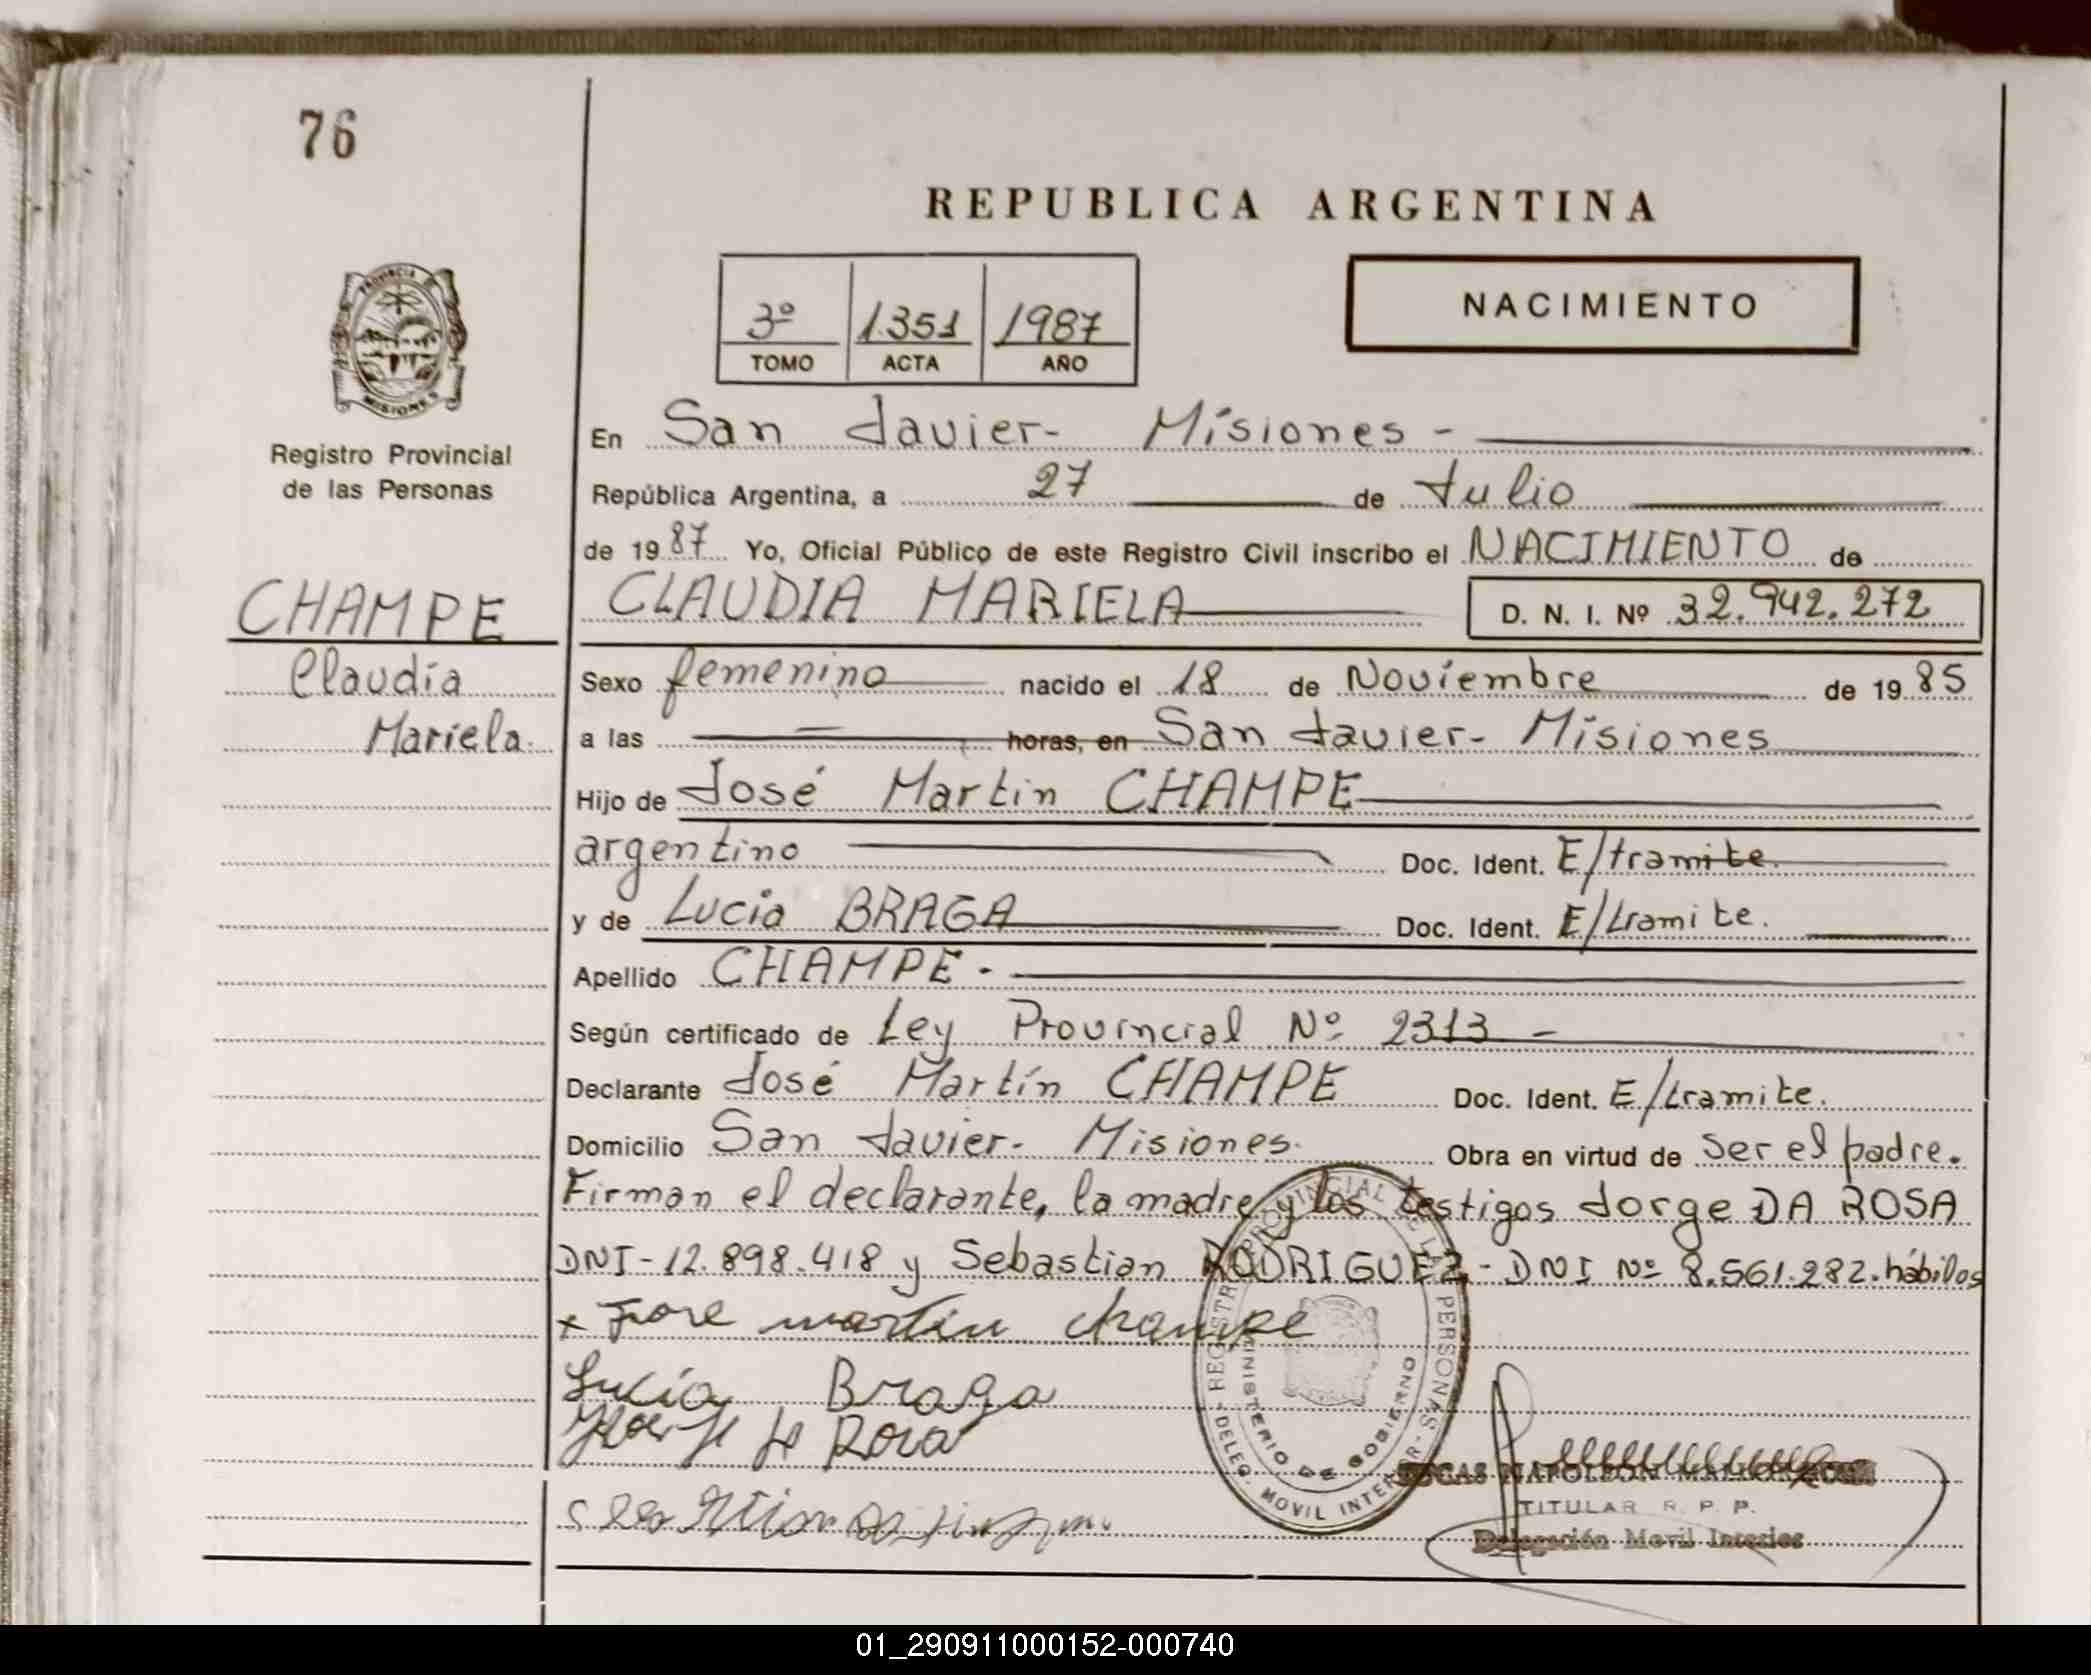 76
REPUBLICA ARGENTINA
3º 1.351 1987
TOMO ACTA AÑO
NACIMIENTO
PROVINCIA
MISIONES
Registro Provincial
de las Personas
CHAMPE
Claudia
Mariela.
En San Javier- Misiones -
República Argentina, a 27 de Julio
de 1987 Yo, Oficial Público de este Registro Civil inscribo el NACIMIENTO de
CLAUDIA MARIELA D. N. I. Nº 32.942.272
Sexo femenino nacido el 18 de Noviembre de 1985
a las — horas, en San Javier- Misiones
Hijo de José Martin CHAMPE
argentino Doc. Ident. E/tramite.
y de Lucia BRAGA Doc. Ident. E/tramite.
Apellido CHAMPE.
Según certificado de Ley Provincial Nº 2313 -
Declarante José Martín CHAMPE Doc. Ident. E/tramite.
Domicilio San Javier- Misiones. Obra en virtud de ser el padre.
Firman el declarante, la madre y los testigos Jorge DA ROSA
DNI-12.898.418 y Sebastian RODRIGUEZ- DNI Nº 8.561.282. hábiles
x Jose martin champe
Lucía Braga
Rosa
REGISTRO PROVINCIAL DE LAS PERSONAS - DELEG. MOVIL INTERIOR -
MINISTERIO DE GOBIERNO
NAPOLEON
TITULAR R. P. P.
Delegación Movil Interior
01_290911000152-000740